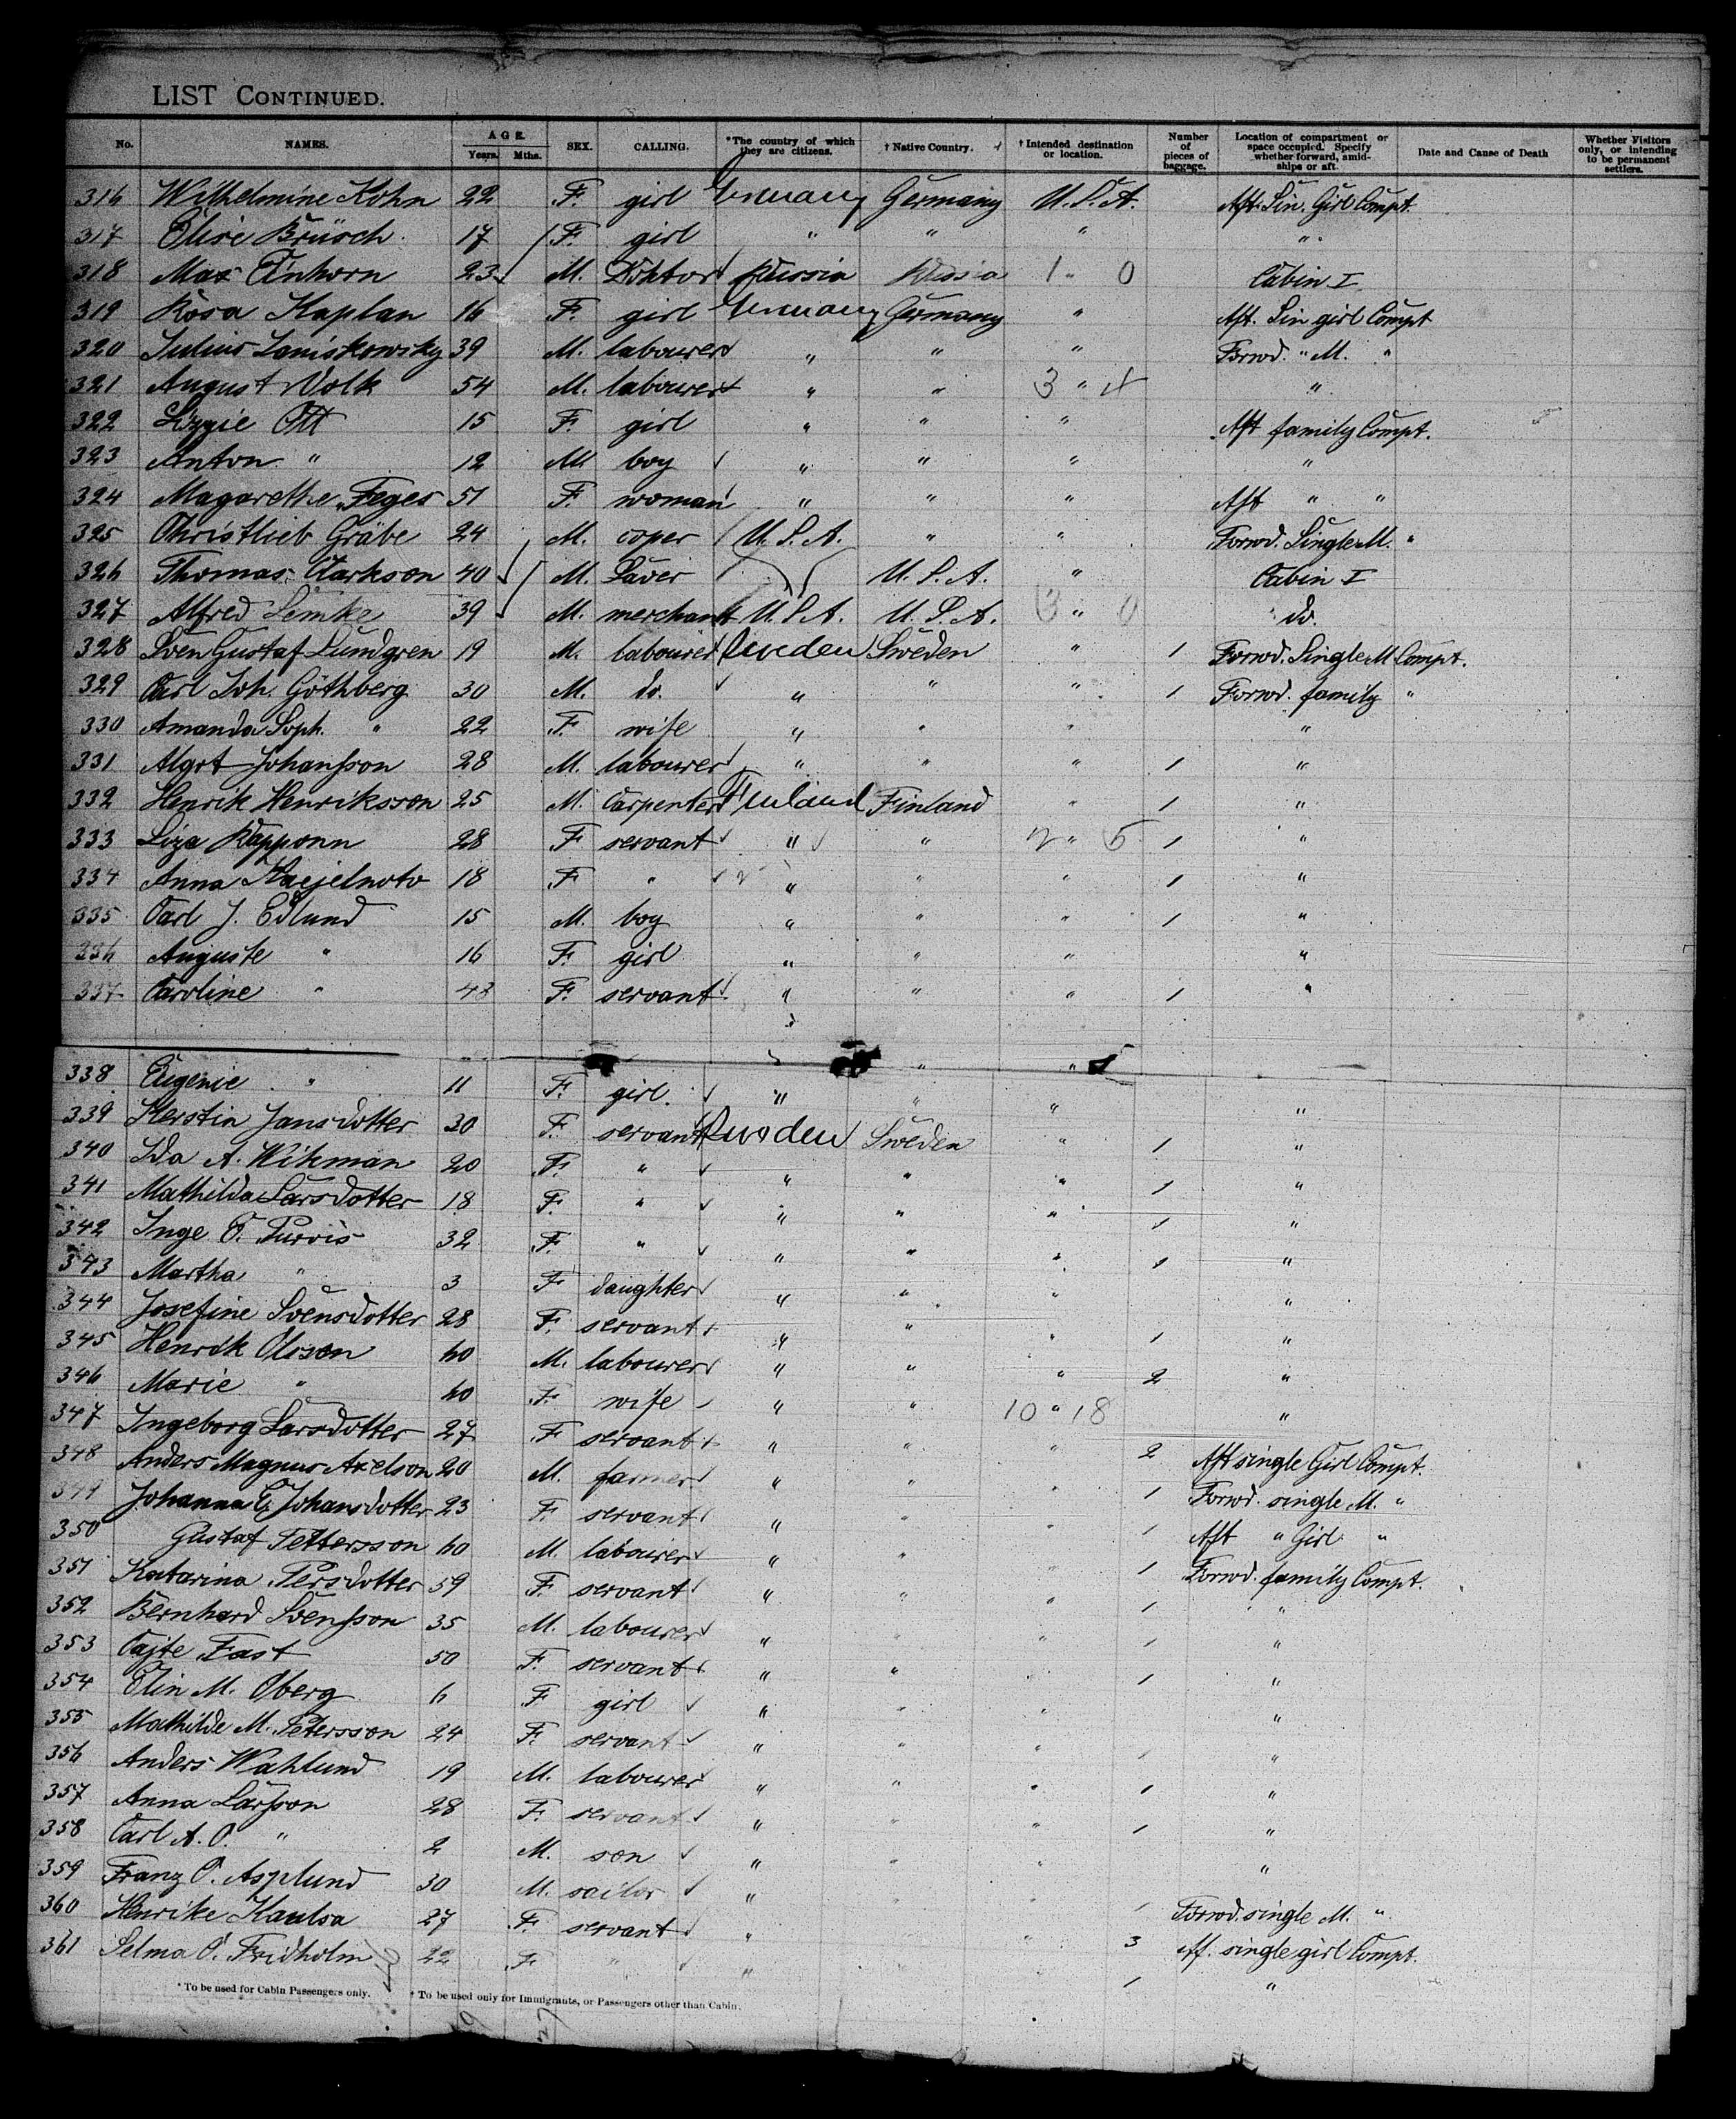 LIST CONTINUED.
No. NAMES. AGE. Years. Mths. SEX. CALLING. *The country of which they are citizens. † Native Country. † Intended destination or location. Number of pieces of baggage. Location of compartment or space occupied. Specify whether forward, amidships or aft. Date and Cause of Death Whether Visitors only, or intending to be permanent settlers.
316 Wilhelmine Kohn 22 F. girl Germany Germany U.S.A. Aft. Sin. Girl Compt.
317 Elise Brüsch 17 F. girl " " " "
318 Max Einhorn 23 M. Doktor Russia Russia 1 " 0 Cabin I
319 Rosa Kaplan 16 F. girl Germany Germany " Aft. Sin girl Compt
320 Julius Laniskowsky 39 M. labourer " " " Forwd. " M. "
321 August Volk 54 M. labourer " " 3 " 4 "
322 Lizzie Ott 15 F. girl " " " Aft family Compt.
323 Anton " 12 M. boy " " " "
324 Magarethe Feges 51 F. woman " " " Aft " "
325 Christlieb Gräbe 24 M. coper U.S.A. " " Forwd. Single M. "
326 Thomas Clarkson 40 M. U.S.A. " Cabin I
327 Alfred Lemke 39 M. merchant U.S.A. U.S.A. 3 " 0 do.
328 Sven Gustaf Lundgren 19 M. labourer Sweden Sweden " 1 Forwd. Single M Compt.
329 Carl Joh. Göthberg 30 M. do. " " " 1 Forwd. family "
330 Amanda Soph. " 22 F. wife " " " "
331 Algot Johansson 28 M. labourer " " " 1 "
332 Henrik Henriksson 25 M. Carpenter Finland Finland " 1 "
333 Liza Kapponn 28 F servant " " 2 " 5 1 "
334 Anna 18 F " " " " 1 "
335 Carl J. Edlund 15 M. boy " " " 1 "
336 Auguste " 16 F. girl " " " "
337 Caroline " 43 F. servant " " " 1 "
338 Eugenie " 11 F. girl. " " " "
339 Kerstin Jansdotter 30 F. servant Sweden Sweden " 1 "
340 Ida A. Wikman 20 F. " " " " 1 "
341 Mathilda Larsdotter 18 F. " " " " 1 "
342 Inge C. Purvis 32 F. " " " " 1 "
343 Martha " 3 F daughter " " " "
344 Josefine Svensdotter 28 F. servant " " " 1 "
345 Henrik Olsson 60 M. labourer " " " 2 "
346 Marie " 60 F. wife " " 10 " 18 "
347 Ingeborg Larsdotter 27 F servant " " " 2 Aft single Girl Compt.
348 Anders Magnus Axelson 20 M. farmer " " " 1 Forwd. single M. "
349 Johanna C. Johansdotter 23 F. servant " " " 1 Aft " Girl "
350 Gustaf Pettersson 60 M. labourer " " " 1 Forwd. family Compt.
351 Katarina Persdotter 59 F. servant " " " 1 "
352 Bernhard Svensson 35 M. labourer " " " 1 "
353 Cajte Fast 50 F. servant " " 1 "
354 Elin M. Oberg 6 F girl " " " "
355 Mathilde M. Petersson 24 F. servant " " " 1 "
356 Anders Wahlund 19 M. labourer " " " 1 "
357 Anna Larsson 28 F. servant " " " 1 "
358 Carl A. O. " 2 M. son " " " "
359 Franz O. Asplund 30 M. sailor " " " 1 Forwd. single M. "
360 Henrike Kaulsa 27 F. servant " " " 3 Aft. single girl Compt.
361 Selma O. Fridholm 22 F " " 1 "
*To be used for Cabin Passengers only. † To be used only for Immigrants, or Passengers other than Cabin.